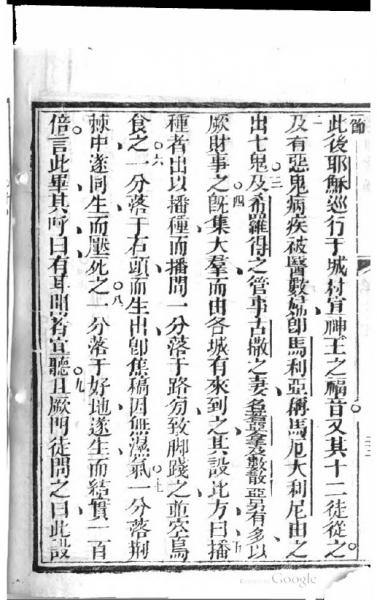 節
一此後耶穌巡行于城村宣神王之福音又其十二徒從之
二及有惡鬼病疾被醫數婦卽馬利亞稱馬厄大利尼由之
出七鬼三及希羅得之管事古撒之妻名及數散亞另有多以
厥財事之四旣集大羣而由各城有來到之其設比方曰五播
種者出以播種而播間一分落于路旁致脚踐之並空鳥
食之六一分落于石頭而生出卽焦槁因無濕氣七一分落荆
棘中遂同生而壓死之八一分落于好地遂生而結實一百
倍言此畢其呼曰有耳聞者宜聽九且厥門徒問之曰此設
Google